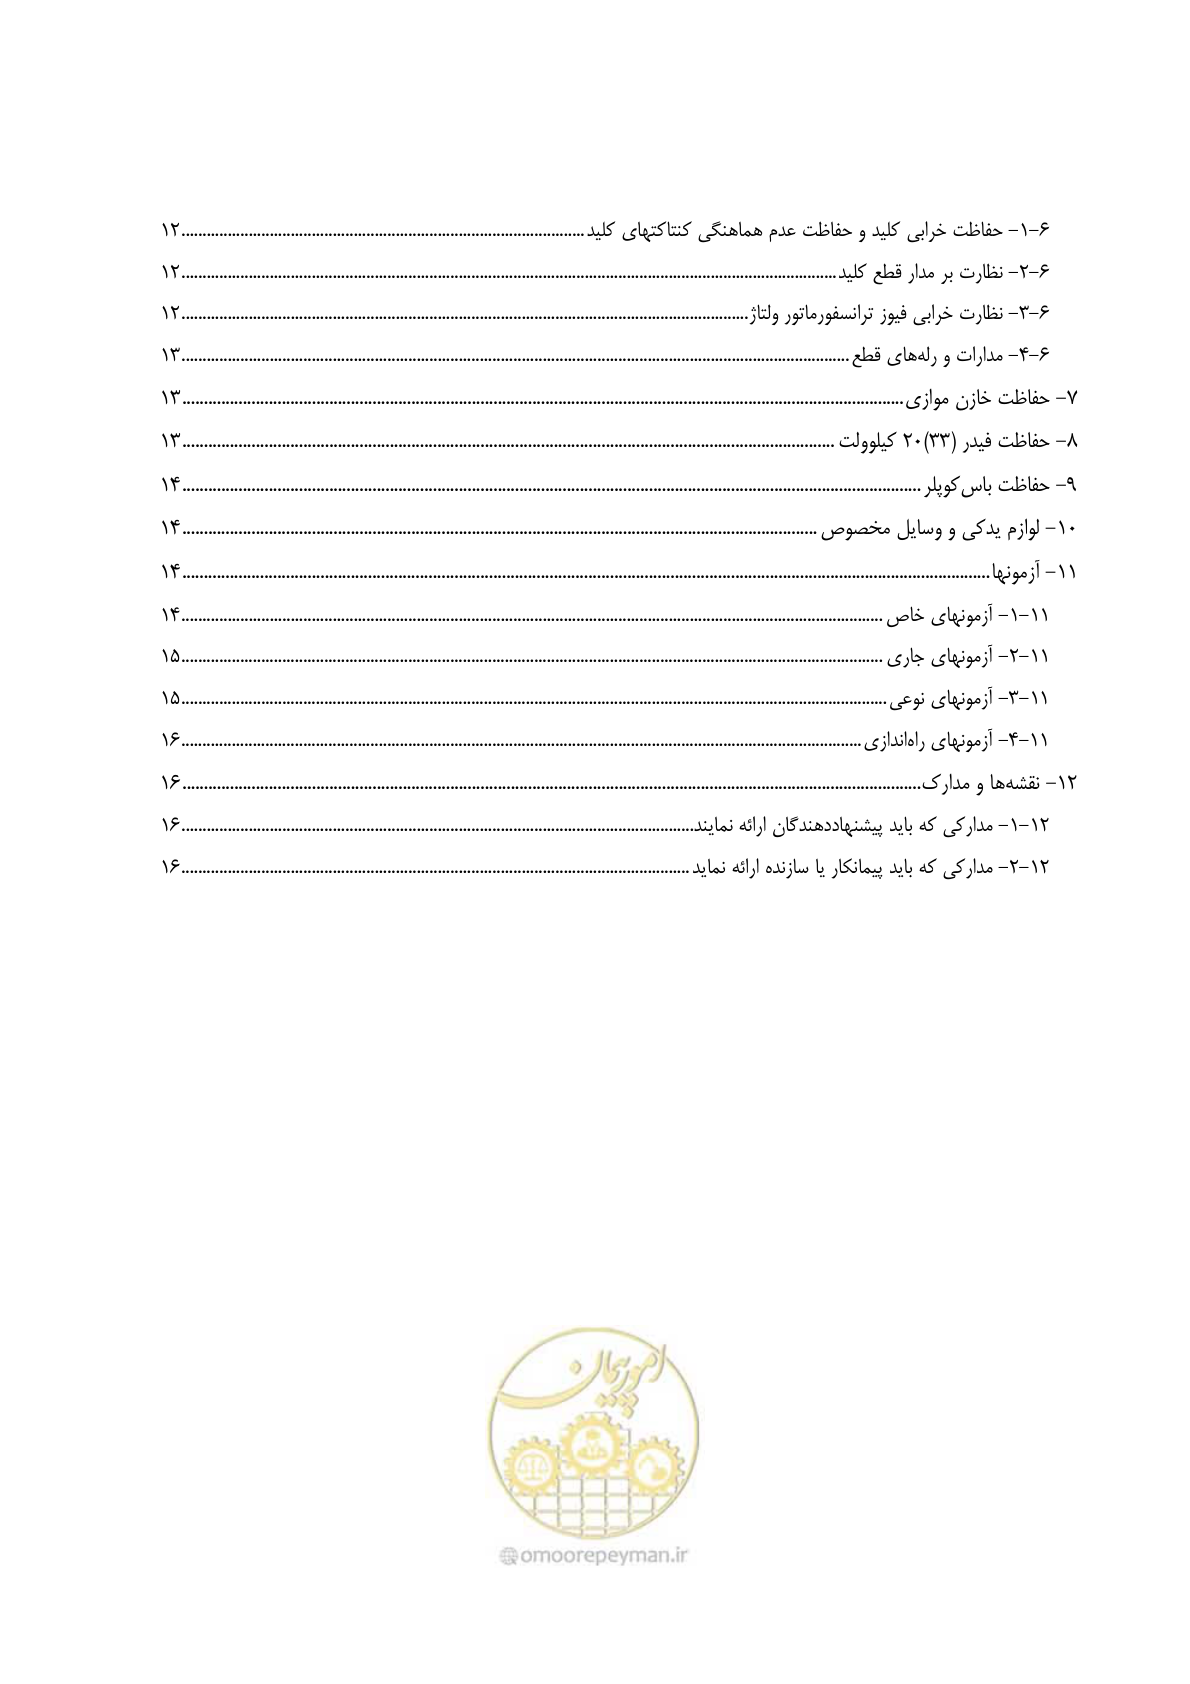 ۶-۱- حفاظت خرابی کلید و حفاظت عدم هماهنگی کنتاکتهای کلید........................................۱۲
۶-۲- نظارت بر مدار قطع کلید........................................۱۲
۶-۳- نظارت خرابی فیوز ترانسفورماتور ولتاژ........................................۱۲
۶-۴- مدارات و رله‌های قطع........................................۱۳
۷- حفاظت خازن موازی........................................۱۳
۸- حفاظت فیدر (۳۳)۲۰ کیلوولت........................................۱۳
۹- حفاظت باس‌کوپلر........................................۱۴
۱۰- لوازم یدکی و وسایل مخصوص........................................۱۴
۱۱- آزمونها........................................۱۴
۱۱-۱- آزمونهای خاص........................................۱۴
۱۱-۲- آزمونهای جاری........................................۱۵
۱۱-۳- آزمونهای نوعی........................................۱۵
۱۱-۴- آزمونهای راه‌اندازی........................................۱۶
۱۲- نقشه‌ها و مدارک........................................۱۶
۱۲-۱- مدارکی که باید پیشنهاددهندگان ارائه نمایند........................................۱۶
۱۲-۲- مدارکی که باید پیمانکار یا سازنده ارائه نماید........................................۱۶
امور پیمان
@omoorepeyman.ir